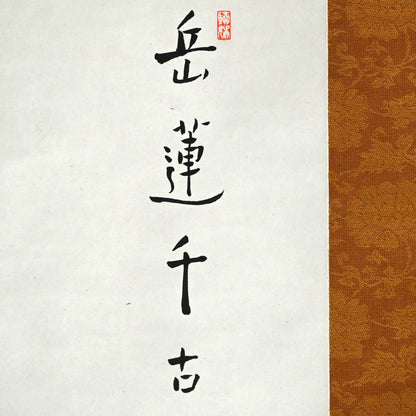 岳蓮千古